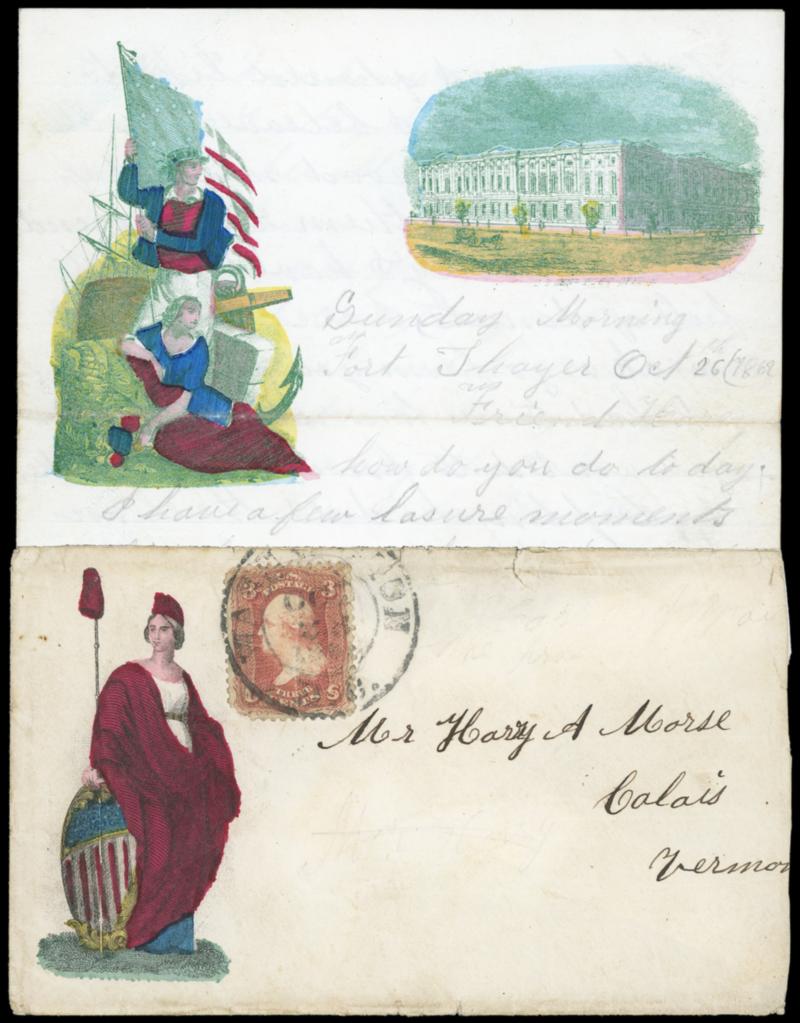 Sunday Morning
Fort Thayer Oct 26th/1862
Friend
how do you do to day.
I have a few lasure moments
3 3
U.S. POSTAGE
THREE
CENTS
Mr Harry A Morse
Calais
Vermon